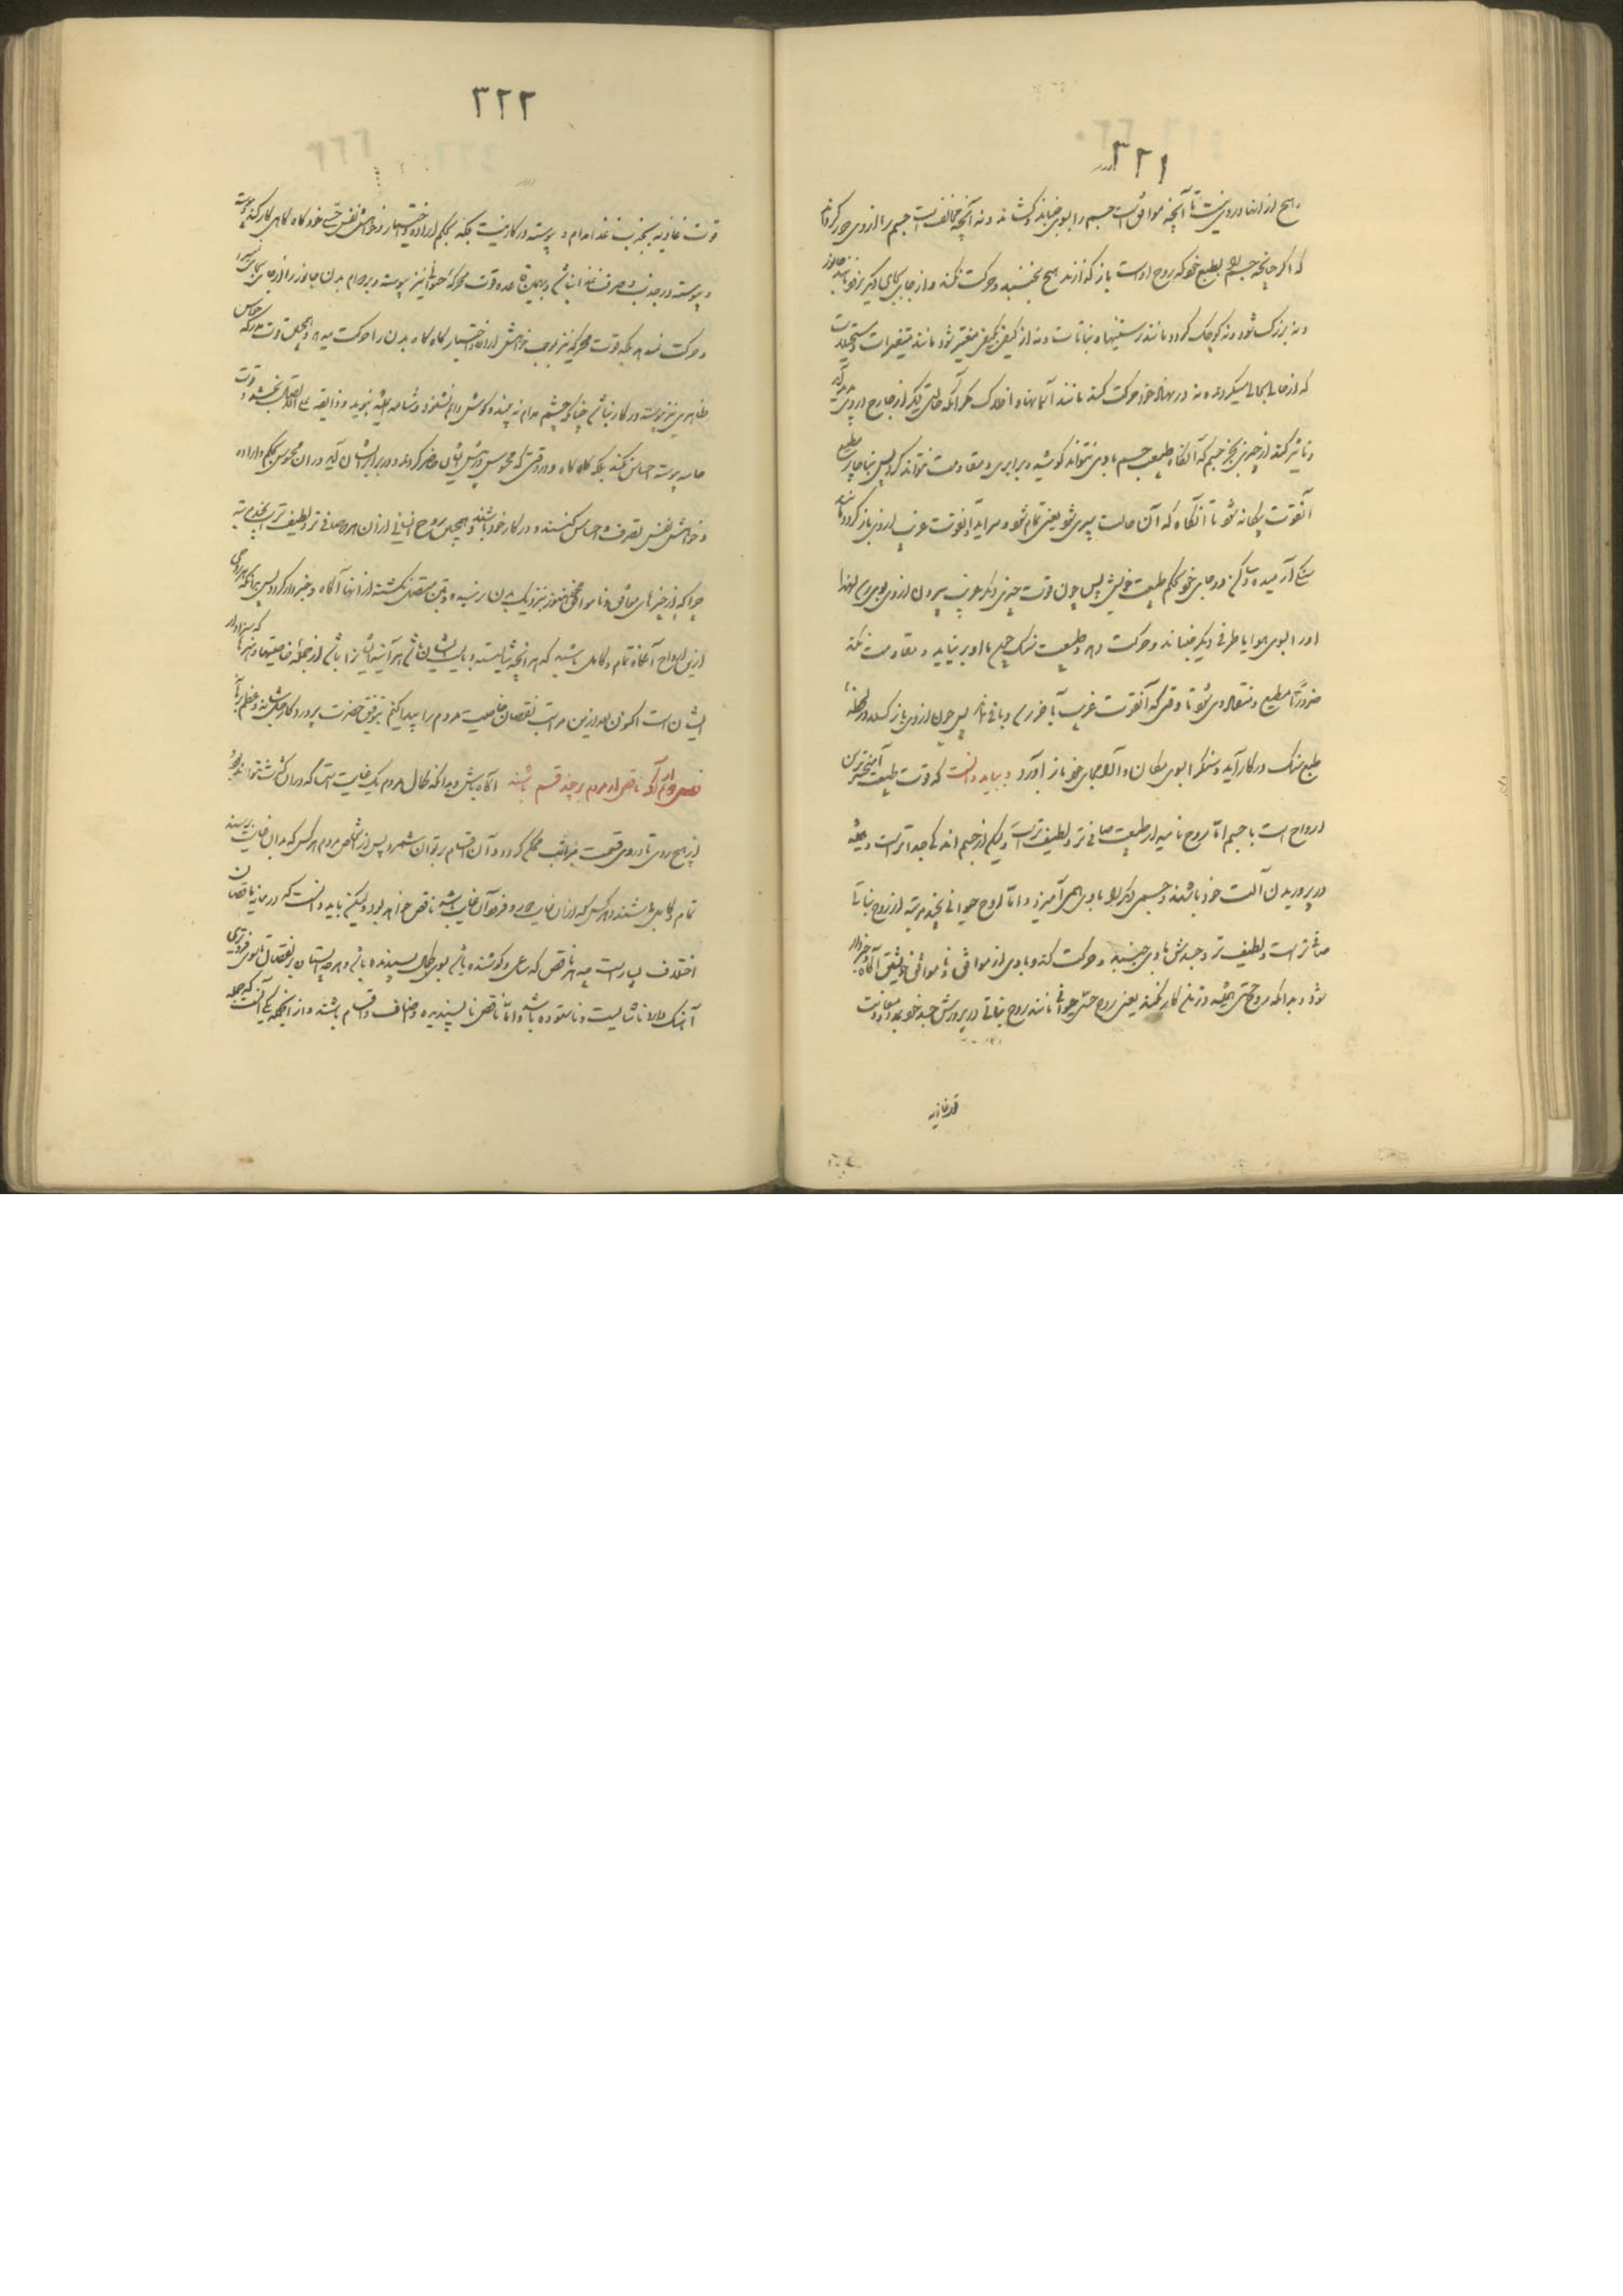 ۳۲۱
هیچ از اینها در وی نیست تا آنچه موافق است جسم را بسوی خود کشاند و نه آنچه مخالف است جسم را از وی دور کرداند
که اگر چنانچه جسم را بطبع خود که روح اوست باز گذارند هیچ نجنبد و حرکت نکند و از جای بجای دیگر نرود
و نه بزرگ شود و نه کوچک گردد مانند رستنیها و نباتات و نه از کیفی بکیفی متغیر شود مانند متغیرات و مستحیلات
که از حالی بحالی میگردند و نه در نهاد خود حرکت کند مانند آسمانها و افلاک مگر آنکه حالتی دیگر از خارج در وی پدید آید
و تاثیر کند از چیزی بجز جسم که آنگاه طبیعت جسم با وی نتواند کوشید و برابری و مقاومت نتواند کرد پس بناچار مطیع
آن قوت بیگانه شود تا آنگاه که آن حالت سپری شود یعنی تمام شود و سر آید و آن قوت غریب از وی باز گردد مانند
سنگ آرمیده و ساکن در جای خود بحکم طبیعت خویش پس چون قوت چیزی دیگر غریب بیرون از وی
او را بسوی هوا یا طرفی دیگر جنباند و حرکت دهد و طبیعت سنگ هیچ با او بر نیاید و مقاومت نکند
ضرورتاً مطیع و منقاد وی شود تا وقتی که آن قوت غریب بآخر رسد و باقی نماند پس چون از وی باز گسلد در لحظه
طبع سنگ در کار آید و سنگ را بسوی مکان و آرامجای خود باز آورد و بباید دانست که قوت طبیعت آمیخته‌ترین
ارواح است با جسم اما روح نامیه از طبیعت صافی‌تر و لطیف‌تر است و لیکن از جسم اندکی جداتر است و همیشه
در پروریدن آلت خود باشد و جسمی دیگر را با وی همی آمیزد و اما روح حیوانی بچند مرتبه از روح نباتی
صافی‌تر است و لطیف‌تر و جسدش با وی جنبد و حرکت کند و با وی از موافق و ناموافق خویش آگاه و خبردار
شود و بدانکه روح حسی همیشه در تن کار نکند یعنی روح حسی حیوانی مانند روح نباتی در پرورش جسد خود
قوت غاذیه
۳۲۲
قوت غاذیه بجذب غذا مدام و پیوسته در کار نیست بلکه بحکم اراده و اختیار و خواهش نفس حسی خود گاه گاهی کار کند و پیوسته
و پیوسته در جذب و صرف غذا نباشد و بهمین قاعده قوت محرکه حیوانی نیز پیوسته و بر دوام بدن جانور را از جای بجای نبرد
و حرکت ندهد بلکه قوت محرکه نیز بموجب خواهش اراده و اختیار گاه گاه بدن را حرکت میدهد و همچنین قوت مدرکه حواس
ظاهری نیز پیوسته در کار نباشد چنانکه چشم مدام نه بیند و گوش دایم نشنود و شامه همیشه نبوید و ذائقه علی الاتصال نچشد و قوت
حاسه پیوسته احساس نکند بلکه گاه گاه و در وقتی که محسوس در پیش ایشان حاضر گردد و در برابر ایشان آید در آن محسوس بحکم و اراده
و خواهش نفس تصرف و احساس کنند و در کار خود باشند و همچنین روح انسانی از آن هر دو صافی‌تر و لطیف‌تر است بچند مرتبه
چرا که از چیزهای موافق و ناموافق هنوز بنزدیک بدن نرسیده و بتن متصل نگشته از آنها آگاه و خبردار گردد پس بدانکه هر روحی
ازین ارواح آنگاه تمام و کامل باشد که هر آنچه شایسته و بایسته ایشان باشد هر آینه ایشان را باشد از جمله خاصیتها و هنرها که سزاوار
ایشان است اکنون بعد ازین مراتب نقصان خاصیت مردم را پیدا کنم بتوفیق حضرت پروردگار جل شانه و عظم برهانه
فصل در آنکه ناقص از مردم بر چند قسم باشند آگاه باش و بدانکه کمال مردم یک غایت است که در آن کثرت نتواند بود
از هیچ روی تا در وی قسمت بمراتب ممکن گردد و آن اقسام بر توان شمرد پس از اشخاص مردم هر کس که بدان غایت برسید
تمام و کامل باشند و هر کس که از آن غایت دور و فروتر آن غایت باشد ناقص خواهد بود و لیکن بباید دانست که در میان ناقصان
اختلاف بسیار است چه هر ناقص که ساعی و کوشنده باشد بسوی کمال پسندیده باشد و هر چه ایستاده بر نقصان یا بسوی فروتری
آهنگ دارد ناشایست و ناستوده باشد و اما ناقص ناپسندیده و اصناف و اقسام باشند و از آنجمله یکی آنست که جمله